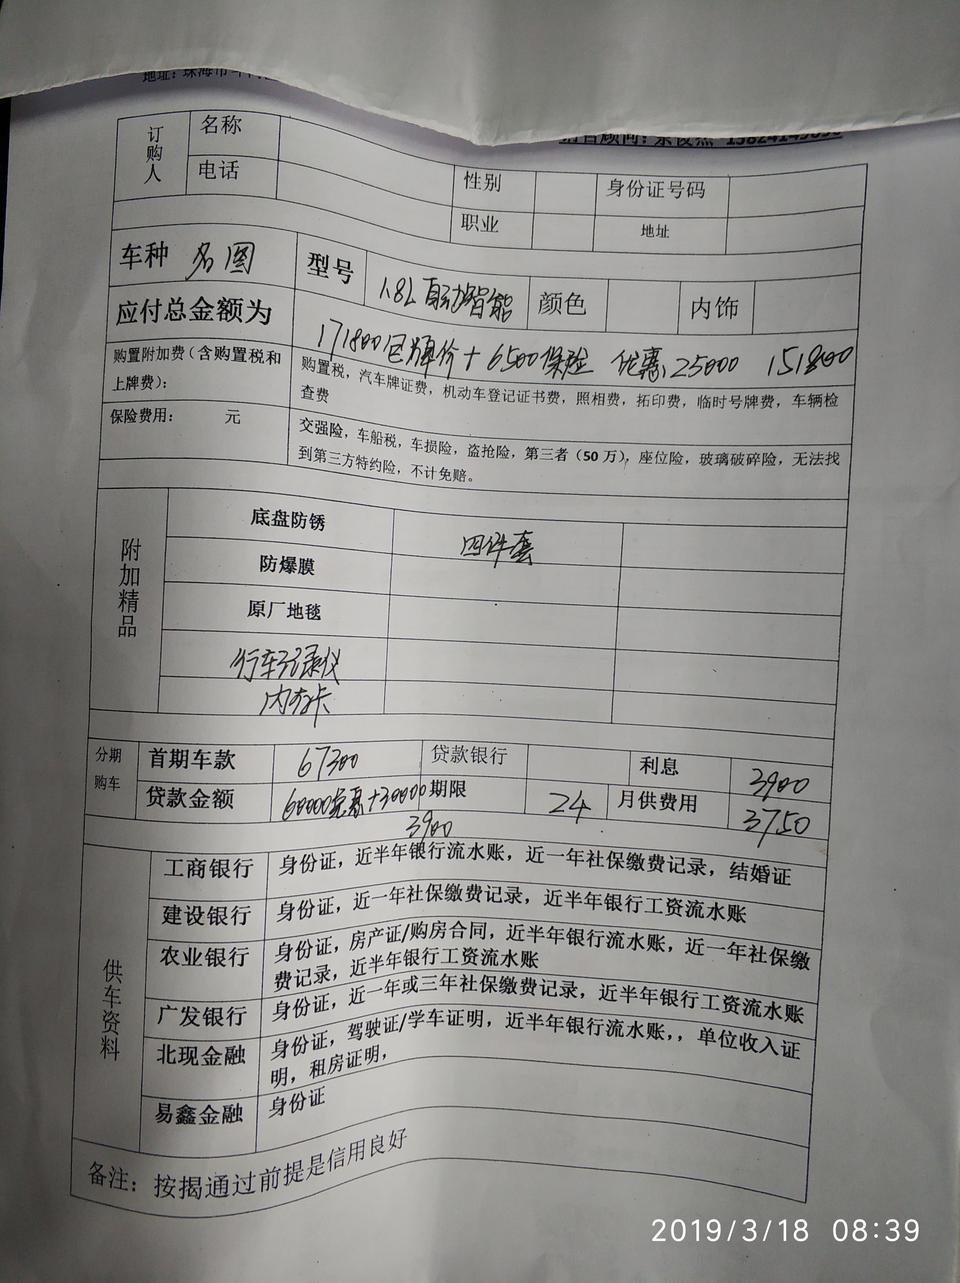 地址：珠海市斗门
销售顾问：
订购人
名称
电话
性别
身份证号码
职业
地址
车种 名图
型号 1.8L自动智能
颜色
内饰
应付总金额为
171800包牌价+6500保险 优惠25000 151800
购置附加费（含购置税和
上牌费）：
购置税，汽车牌证费，机动车登记证书费，照相费，拓印费，临时号牌费，车辆检
查费
保险费用： 元
交强险，车船税，车损险，盗抢险，第三者（50万），座位险，玻璃破碎险，无法找
到第三方特约险，不计免赔。
附加精品
底盘防锈
四件套
防爆膜
原厂地毯
行车记录仪
内存卡
分期
购车
首期车款 67300
贷款银行
利息 3900
贷款金额 60000免息+30000
3900
期限 24
月供费用 3750
供车资料
工商银行 身份证，近半年银行流水账，近一年社保缴费记录，结婚证
建设银行 身份证，近一年社保缴费记录，近半年银行工资流水账
农业银行 身份证，房产证/购房合同，近半年银行流水账，近一年社保缴
费记录，近半年银行工资流水账
广发银行 身份证，近一年或三年社保缴费记录，近半年银行工资流水账
北现金融 身份证，驾驶证/学车证明，近半年银行流水账，，单位收入证
明，租房证明，
易鑫金融 身份证
备注：按揭通过前提是信用良好
2019/3/18 08:39